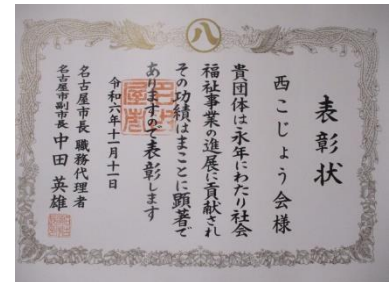 八
表彰状
西こじょう会様
貴団体は永年にわたり社会
福祉事業の進展に貢献され
その功績はまことに顕著で
ありますので表彰します
令和六年十一月十一日
名古屋市長 職務代理者
名古屋市副市長 中田 英雄